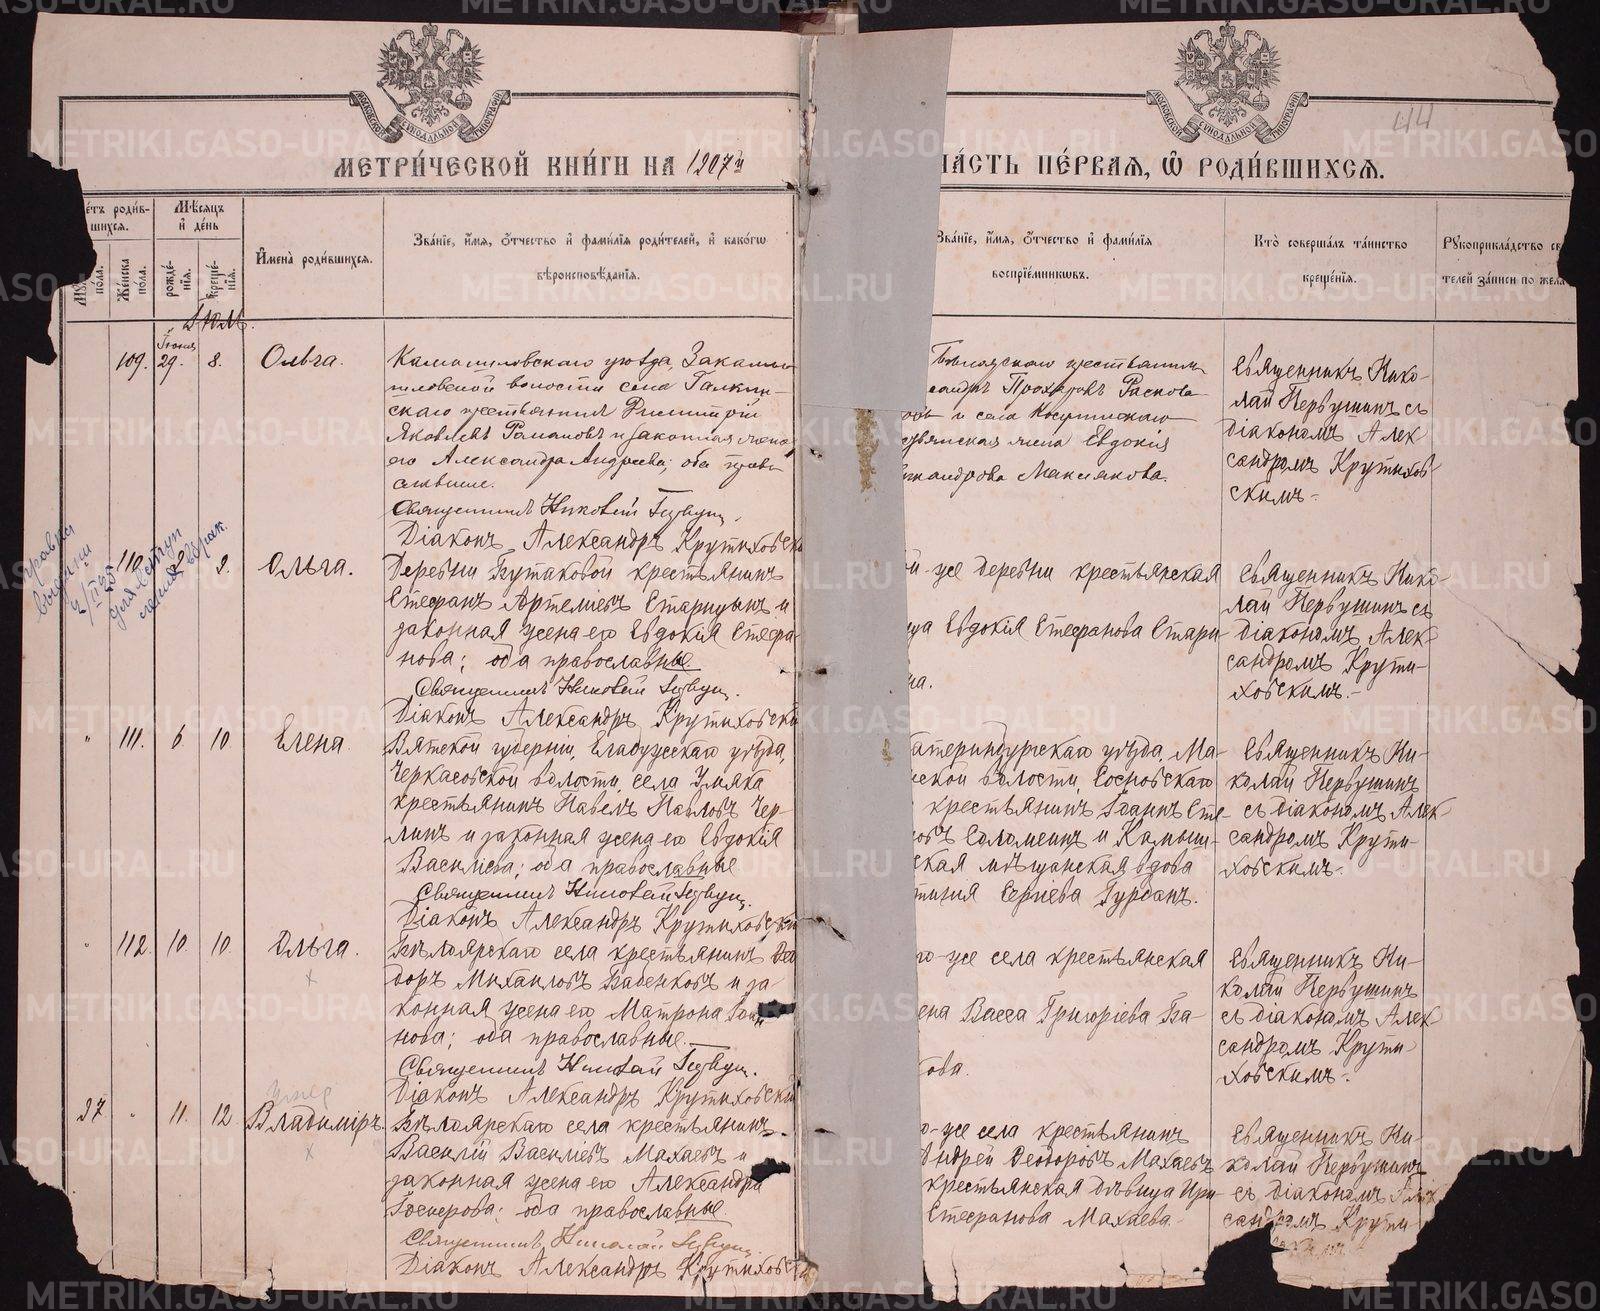 МЕТРИ́ЧЕСКОЙ КНИ́ГИ НА 1907й
ЧА́СТЬ ПЕ́РВАЯ, Ѿ РОДИ́ВШИХСЯ.
44
МОСКОВСКОЙ СѴНОДАЛЬНОЙ ТИПОГРАФІИ
МОСКОВСКОЙ СѴНОДАЛЬНОЙ ТИПОГРАФІИ
етъ роди́в-
шихся.
Мѣсяцъ
и де́нь
Же́нска по́ла.
рожде́-нїя.
креще́-нїя.
Имена̀ роди́вшихся.
Зва́нїе, и́мя, о́тчество и фами́лїя роди́телей, и како́гѡ
вѣроисповѣ́данїя.
Зва́нїе, и́мя, о́тчество и фами́лїя
воспрїе́мникѡвъ.
Кто̀ соверша́лъ та́инство
креще́нїя.
Рꙋкоприкла́дство св
телей за́писи по жела
Іюль.
109. Іюня 29. 8. Ольга.
Камышловскаго уѣзда, Закамыш
ловской волости села Галкин-
скаго крестьянинъ Димитрій
Яковлевъ Романовъ и законная жена
его Александра Андреева; оба право
славные.
Священникъ Николай Первуш.
Діаконъ Александръ Крутиховск
крестьянинъ
сандръ Прохоровъ
и села
жена Евдокія
сандрова Максимова.
Священникъ Нико-
лай Первушинъ съ
діакономъ Алек
сандромъ Крутихов-
скимъ.
110 9. Ольга.
Деревни Бутаковой крестьянинъ
Стефанъ Артеміевъ Старицынъ и
законная жена его Евдокія Стефа-
нова; оба православные
Священникъ Николай Первуш.
Діаконъ Александръ Крутиховски
й-же деревни крестьянская
ца Евдокія Стефанова Стари-
на.
Священникъ Нико-
лай Первушинъ съ
діакономъ Алек-
сандромъ Крути-
ховскимъ.
" 111. 6. 10. Елена
Вятской губерніи, Елабужскаго уѣзда,
Черкасовской волости, села Умяка
крестьянинъ Павелъ Павловъ Чер-
линъ и законная жена его Евдокія
Васильева; оба православные
Священникъ Николай Первуш.
Діаконъ Александръ Крутиховскій
атеринбургскаго уѣзда, Ма-
ской волости, Сосновскаго
крестьянинъ Іоаннъ Сте-
овъ Соломеинъ и Камыш-
ская мѣщанская вдова
Сергіева Гурданъ.
Священникъ Ни-
колай Первушинъ
съ діакономъ Алек-
сандромъ Крути-
ховскимъ.
" 112. 10. 10. Ольга.
х
Бѣлоярскаго села крестьянинъ Ѳео
доръ Михаиловъ Бабенковъ и за-
конная жена его Матрона Іоан
нова; оба православные.
Священникъ Николай Первуш.
Діаконъ Александръ Крутиховскій
го-же села крестьянская
ена Васса Григоріева Ба-
кова.
Священникъ Ни-
колай Первушинъ
съ діакономъ Алек-
сандромъ Крути-
ховскимъ.
97 " 11. 12 Владиміръ.
умер
х
Бѣлоярскаго села крестьянинъ
Василій Васильевъ Махаевъ и
законная жена его Александра
оба православные
Священникъ Николай Первуш.
Діаконъ Александръ Крутиховск
о-же села крестьянинъ
Андрей Ѳеодоровъ Махаевъ
крестьянская дѣвица Ири-
Стефанова Махаева.
Священникъ Ни-
колай Первушинъ
съ діакономъ Алек
сандромъ Крути
METRIKI.GASO-URAL.RU